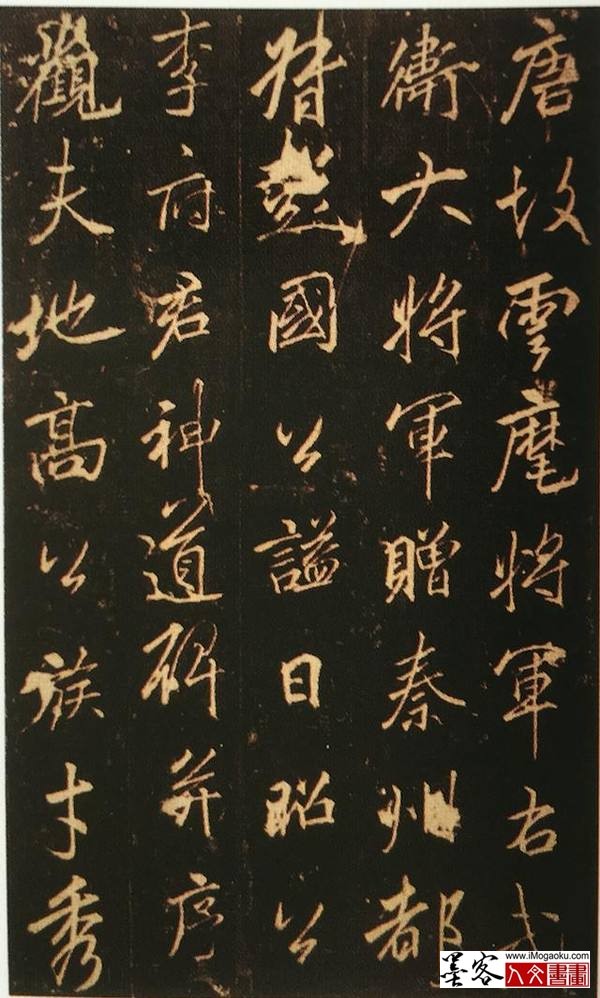 唐故雲麾將軍右武
衛大將軍贈秦州都
督彭國公謚曰昭公
李府君神道碑并序
觀夫地高公族才秀
墨客
www.iMogaoku.com
人文書畫